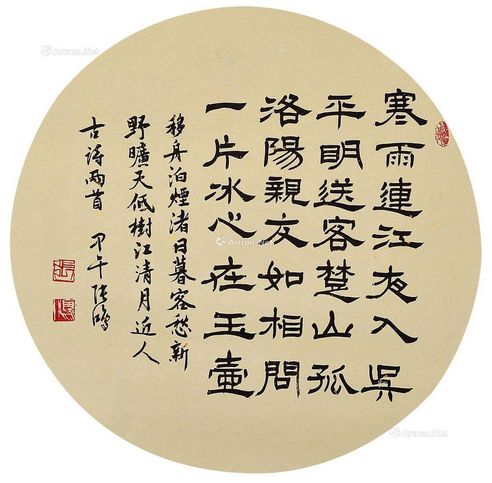 寒雨連江夜入吳
平明送客楚山孤
洛陽親友如相問
一片冰心在玉壺
移舟泊煙渚日暮客愁新
野曠天低樹江清月近人
古詩兩首 甲午
Artron.Net
Artron.Net
Artron.Net